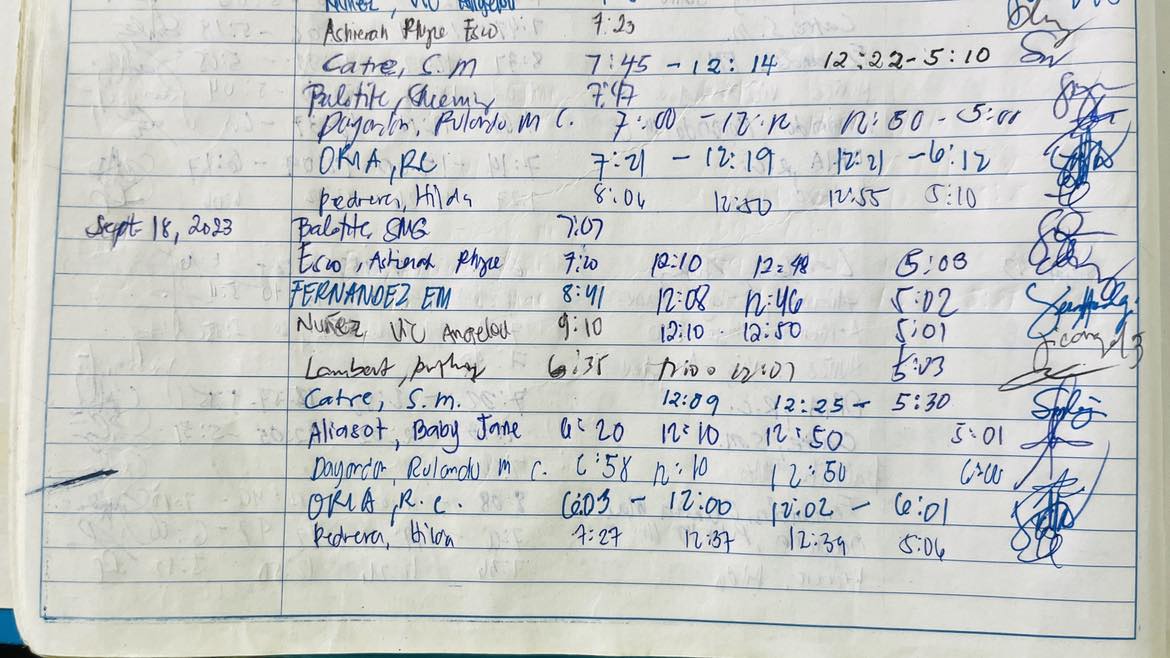 Nuñez, Vic Angelou
Achierah Rhyze Esco 7:23
Catre, S.M 7:45 - 12:14 12:22 - 5:10
Balotite, 7:47
Dayondon, Rulando M C. 7:00 - 12:12 12:50 - 5:00
ORIA, RC 7:21 - 12:19 12:21 - 6:12
Pedrera, Hilda 8:04 12:50 12:55 5:10
Sept 18, 2023 Balotite, SMG 7:07
Esco, Achierah Rhyze 7:20 12:10 12:48 5:03
FERNANDEZ EM 8:41 12:08 12:46 5:02
Nuñez, Vic Angelou 9:10 12:10 12:50 5:01
Lambert, 6:35 12:00 12:07 5:03
Catre, S.M. 12:09 12:25 - 5:30
Aliasot, Baby Jane 6:20 12:10 12:50 5:01
Dayondon, Rulando M C. 6:58 12:10 12:50 6:00
ORIA, R.C. 6:03 - 12:00 12:02 - 6:01
Pedrera, Hilda 7:27 12:37 12:39 5:06